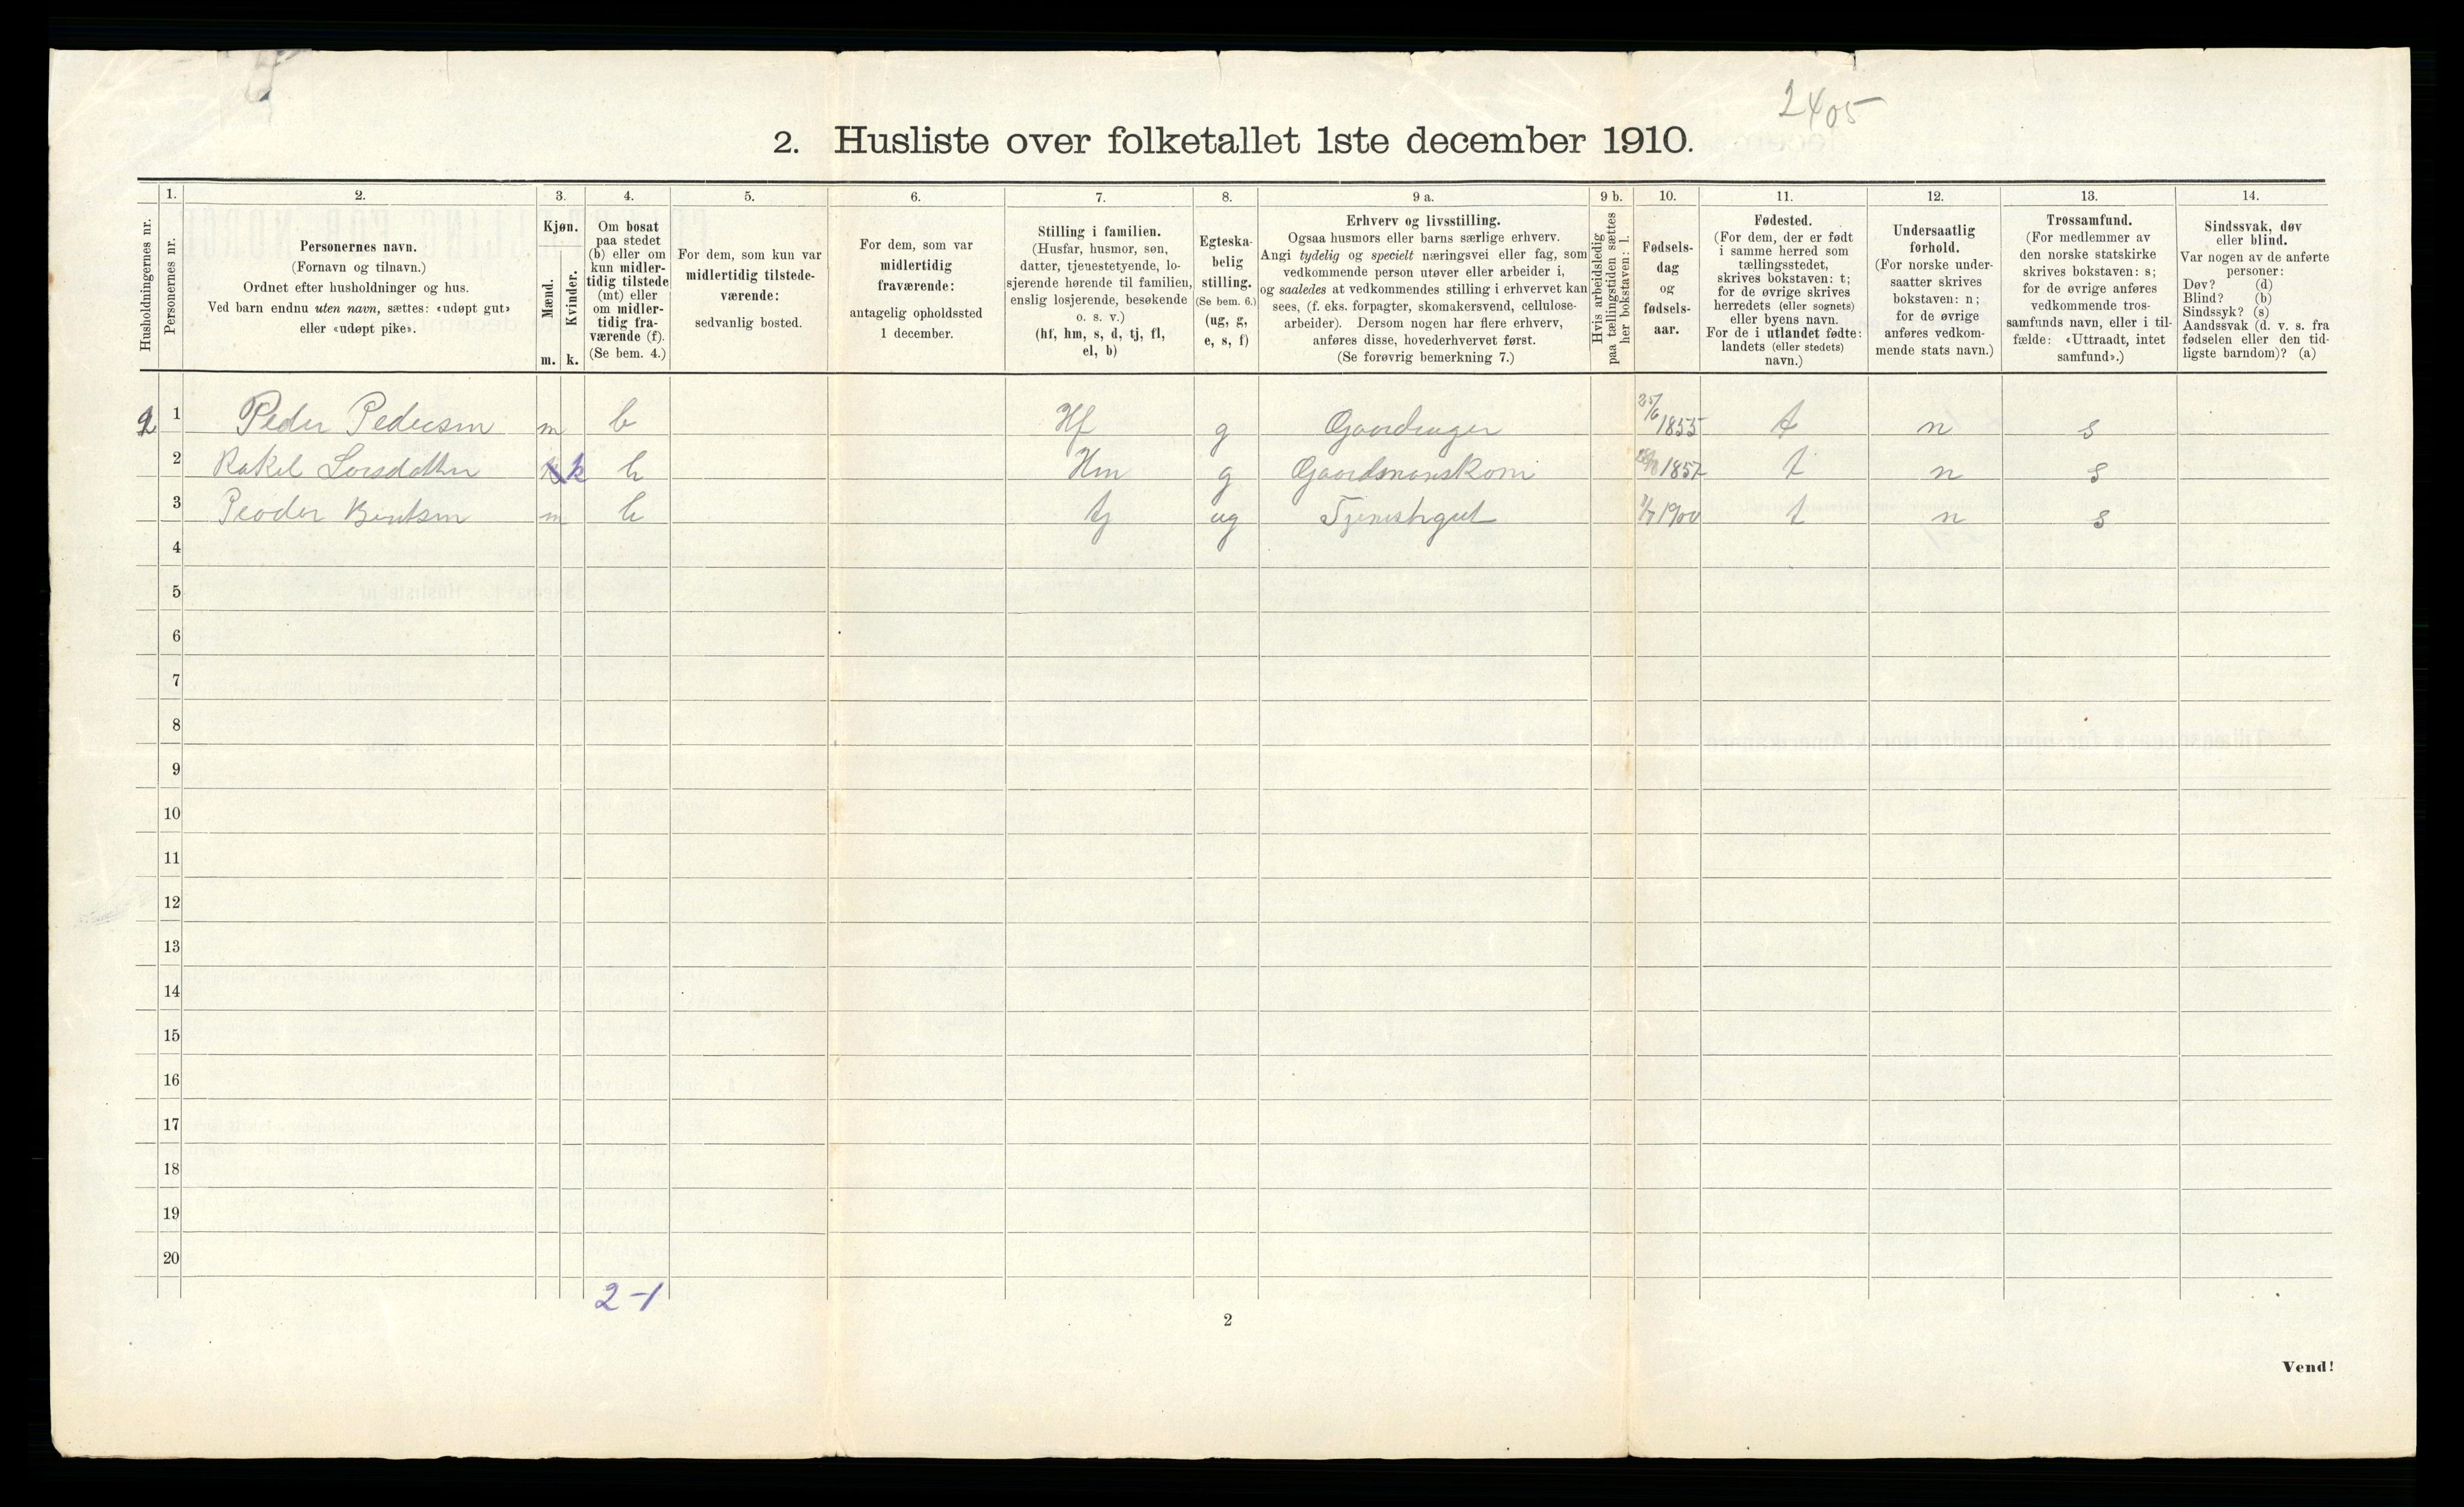 2405
2. Husliste over folketallet 1ste december 1910.
Husholdningernes nr.
1. Personernes nr.
2. Personernes navn. (Fornavn og tilnavn.) Ordnet efter husholdninger og hus. Ved barn endnu uten navn, sættes: «udøpt gut» eller «udøpt pike».
3. Kjøn. Mænd. m. Kvinder. k.
4. Om bosat paa stedet (b) eller om kun midlertidig tilstede (mt) eller om midlertidig fraværende (f). (Se bem. 4.)
5. For dem, som kun var midlertidig tilstedeværende: sedvanlig bosted.
6. For dem, som var midlertidig fraværende: antagelig opholdssted 1 december.
7. Stilling i familien. (Husfar, husmor, søn, datter, tjenestetyende, losjerende hørende til familien, enslig losjerende, besøkende o. s. v.) (hf, hm, s, d, tj, fl, el, b)
8. Egteskabelig stilling. (Se bem. 6.) (ug, g, e, s, f)
9 a. Erhverv og livsstilling. Ogsaa husmors eller barns særlige erhverv. Angi tydelig og specielt næringsvei eller fag, som vedkommende person utøver eller arbeider i, og saaledes at vedkommendes stilling i erhvervet kan sees, (f. eks. forpagter, skomakersvend, cellulosearbeider). Dersom nogen har flere erhverv, anføres disse, hovederhvervet først. (Se forøvrig bemerkning 7.)
9 b. Hvis arbeidsledig paa tællingstiden sættes her bokstaven: l.
10. Fødselsdag og fødselsaar.
11. Fødested. (For dem, der er født i samme herred som tællingsstedet, skrives bokstaven: t; for de øvrige skrives herredets (eller sognets) eller byens navn. For de i utlandet fødte: landets (eller stedets) navn.)
12. Undersaatlig forhold. (For norske undersaatter skrives bokstaven: n; for de øvrige anføres vedkommende stats navn.)
13. Trossamfund. (For medlemmer av den norske statskirke skrives bokstaven: s; for de øvrige anføres vedkommende trossamfunds navn, eller i tilfælde: «Uttraadt, intet samfund».)
14. Sindssvak, døv eller blind. Var nogen av de anførte personer: Døv? (d) Blind? (b) Sindssyk? (s) Aandssvak (d. v. s. fra fødselen eller den tidligste barndom)? (a)
1 Peder Pedersen m b Hf g 25/6 1855 t n s
2 Rakel Larsdatter k b Hm g Gaardmanskone t n s
3 Peder Bentsen m b tj ug Tjenestegut 1900 t n s
4
5
6
7
8
9
10
11
12
13
14
15
16
17
18
19
20
2-1
2
Vend!